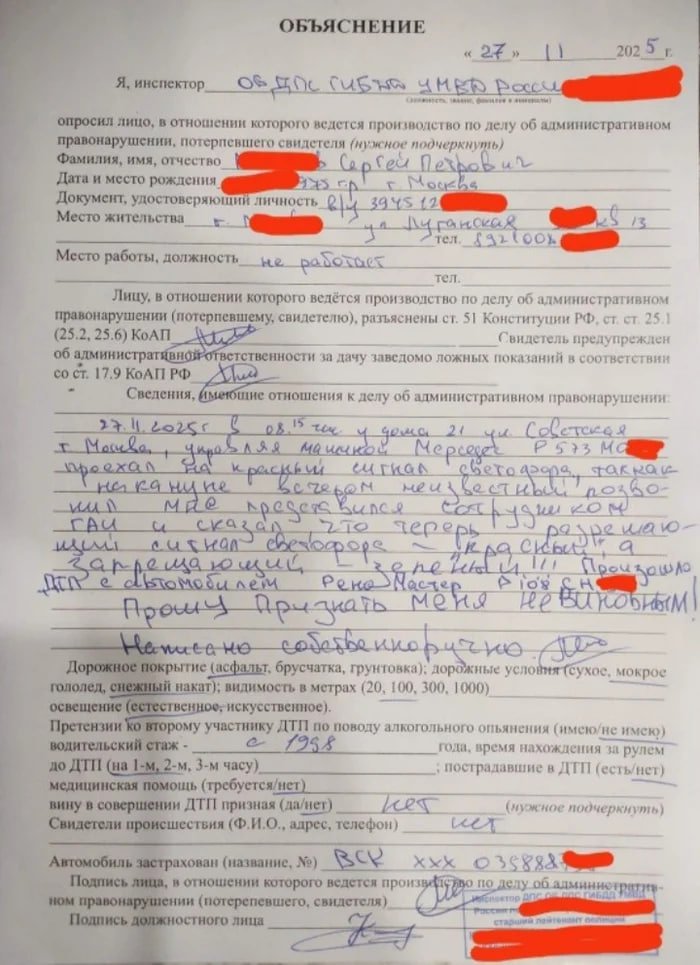 ОБЪЯСНЕНИЕ
« 27 » 11 2025 г.
Я, инспектор ОБ ДПС ГИБДД УМВД России
(должность, звание, фамилия и инициалы)
опросил лицо, в отношении которого ведется производство по делу об административном
правонарушении, потерпевшего свидетеля (нужное подчеркнуть)
Фамилия, имя, отчество Сергей Петрович
Дата и место рождения 1975 г.р г. Москва
Документ, удостоверяющий личность в/у 394512
Место жительства г. ул Луганская кв 13
тел. 8921008
Место работы, должность не работает
тел.
Лицу, в отношении которого ведётся производство по делу об административном
правонарушении (потерпевшему, свидетелю), разъяснены ст. 51 Конституции РФ, ст. ст. 25.1
(25.2, 25.6) КоАП Свидетель предупрежден
об административной ответственности за дачу заведомо ложных показаний в соответствии
со ст. 17.9 КоАП РФ
Сведения, имеющие отношения к делу об административном правонарушении:
27.11.2025г в 08.15 час у дома 21 ул. Советская
г Москва, управляя машиной Мерседес Р573М
проехал на красный сигнал светофора, так как
накануне вечером неизвестный позво-
нил мне представился сотрудником
ГАИ и сказал, что теперь разрешаю-
щий сигнал светофора – "красный", а
запрещающий – зеленый!!! Произошло
ДТП с автомобилем Рено Мастер Р108СН
Прошу признать меня невиновным!
Написано собственноручно
Дорожное покрытие (асфальт, брусчатка, грунтовка); дорожные условия (сухое, мокрое
гололед, снежный накат); видимость в метрах (20, 100, 300, 1000)
освещение (естественное, искусственное).
Претензии ко второму участнику ДТП по поводу алкогольного опьянения (имею/не имею)
водительский стаж - с 1998 года, время нахождения за рулем
до ДТП (на 1-м, 2-м, 3-м часу) ; пострадавшие в ДТП (есть/нет)
медицинская помощь (требуется/нет)
вину в совершении ДТП признаю (да/нет) нет (нужное подчеркнуть)
Свидетели происшествия (Ф.И.О., адрес, телефон) нет
Автомобиль застрахован (название, №) ВСК ХХХ 035888
Подпись лица, в отношении которого ведется производство по делу об административ-
ном правонарушении (потерпевшего, свидетеля)
Подпись должностного лица
Инспектор ДПС ОБ ДПС ГИБДД УМВД
России
старший лейтенант полиции